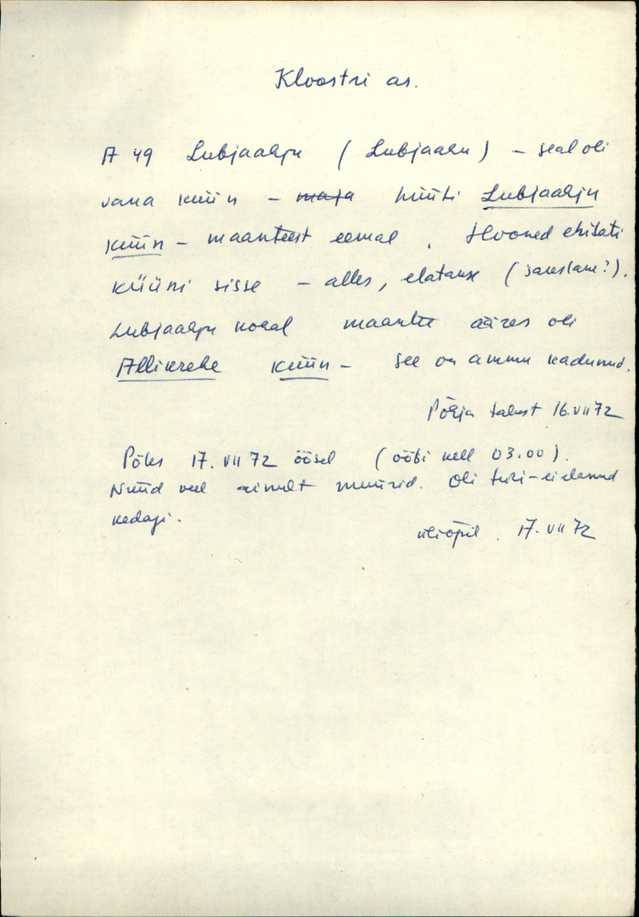 Kloostri as.
A 49 Lubjaahju (Lubjaahu) - seal oli
vana küün - ~~maja~~ hüüti Lubjaahju
küün - maanteest eemal. Hooned ehitati
küüni sisse - alles, elatakse
Lubjaahju kohal maantee ääres oli
Allikrehe küün - see on ammu kadunud.
Põhja talust 16.VII 72
Põles 17.VII 72 öösel (ööbi kell 03.00).
Nüüd veel ainult müürid. Oli tühi - ei elanud
kedagi.
üliõpil. 17.VII 72